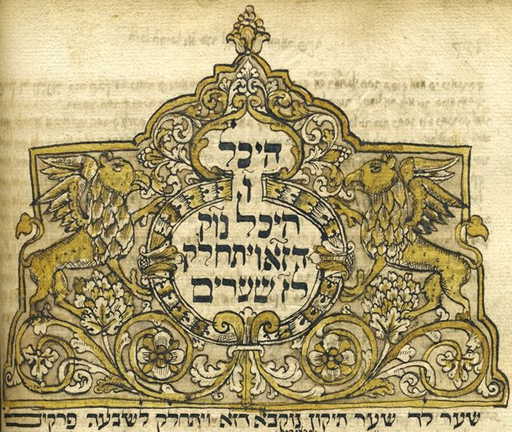 היכל
ו
היכל נוק
דזא ויתחלק
לז שערים
שער לד שער תיקון נוקבא דזא ויתחלק לשבעה פרקים